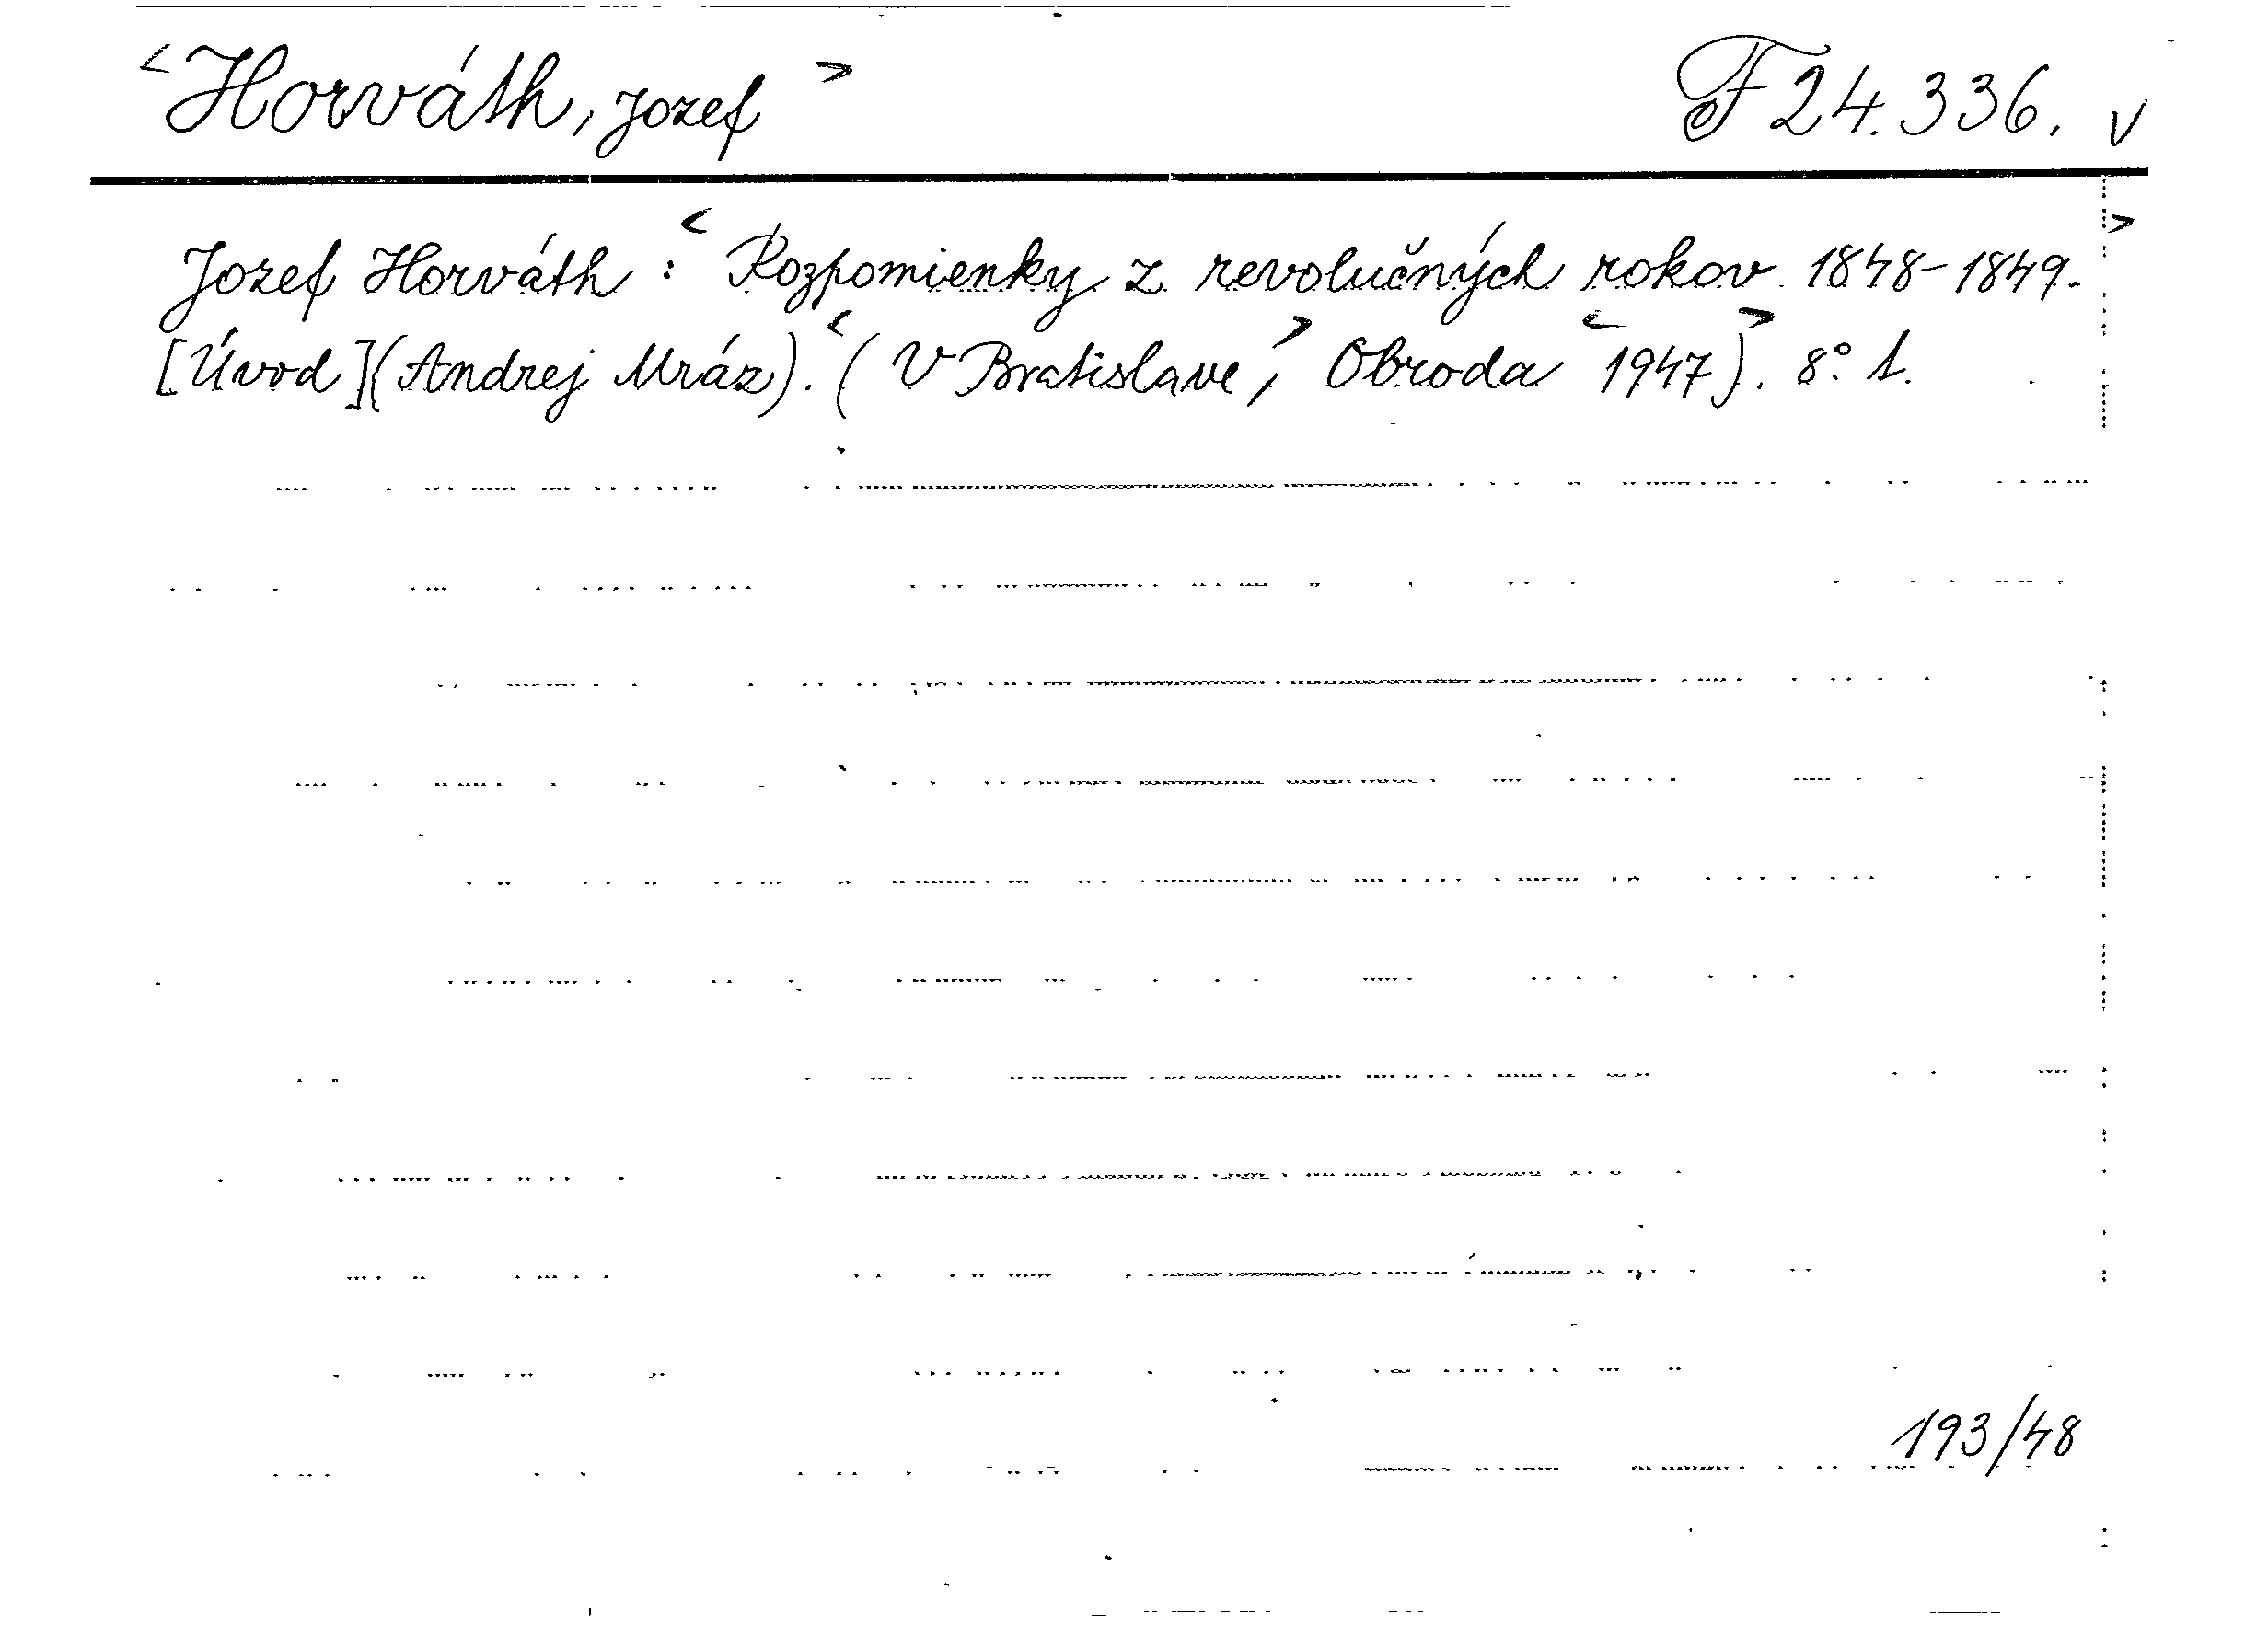 <Horváth, Jozef> F 24.336. v
Jozef Horváth: <Rozpomienky z revolučných rokov 1848-1849.>
[Úvod] (Andrej Mráz). <(V Bratislave,> Obroda <1947>). 8° 1.
193/48